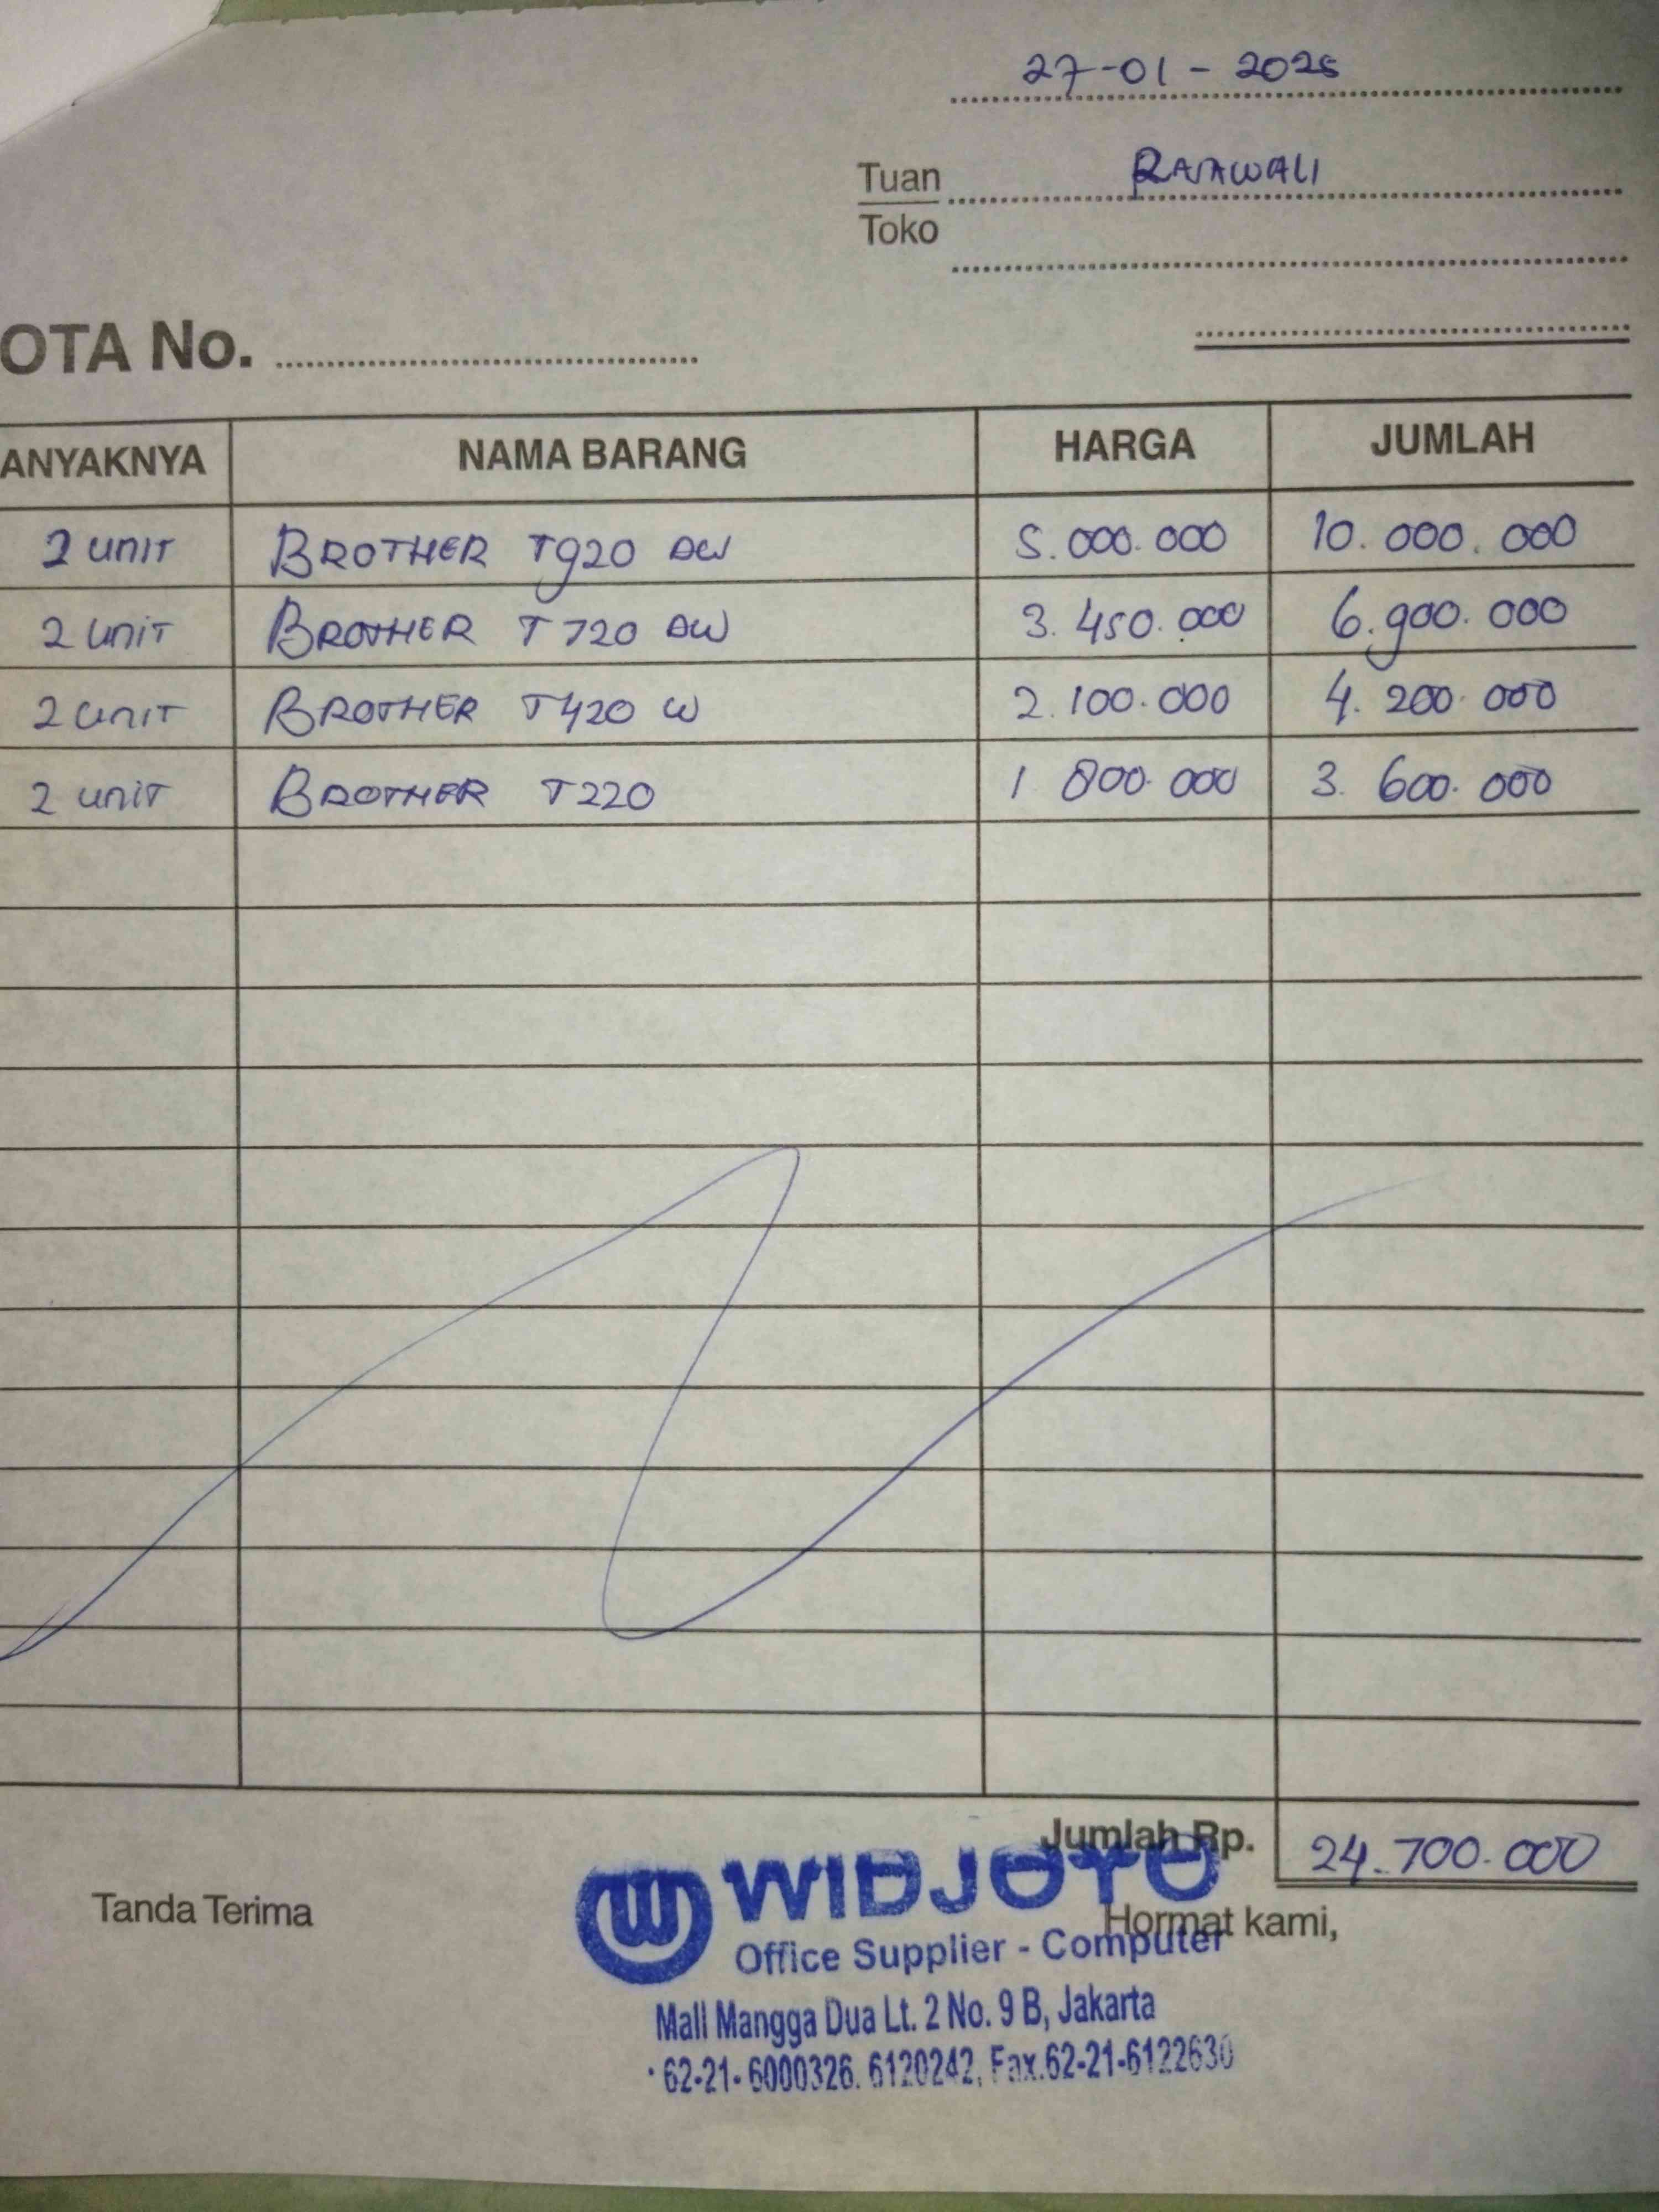 27-01-2025
Tuan RAJAWALI
Toko
OTA No.
ANYAKNYA NAMA BARANG HARGA JUMLAH
2 UNIT BROTHER T920 DW 5.000.000 10.000.000
2 UNIT BROTHER T720 DW 3.450.000 6.900.000
2 UNIT BROTHER T420 W 2.100.000 4.200.000
2 UNIT BROTHER T220 1 800.000 3.600.000
Jumlah Rp. 24.700.000
WIDJOYO
Tanda Terima Hormat kami,
Office Supplier - Computer
Mall Mangga Dua Lt. 2 No. 9 B, Jakarta
62-21-6000326. 6120242, Fax.62-21-6122630